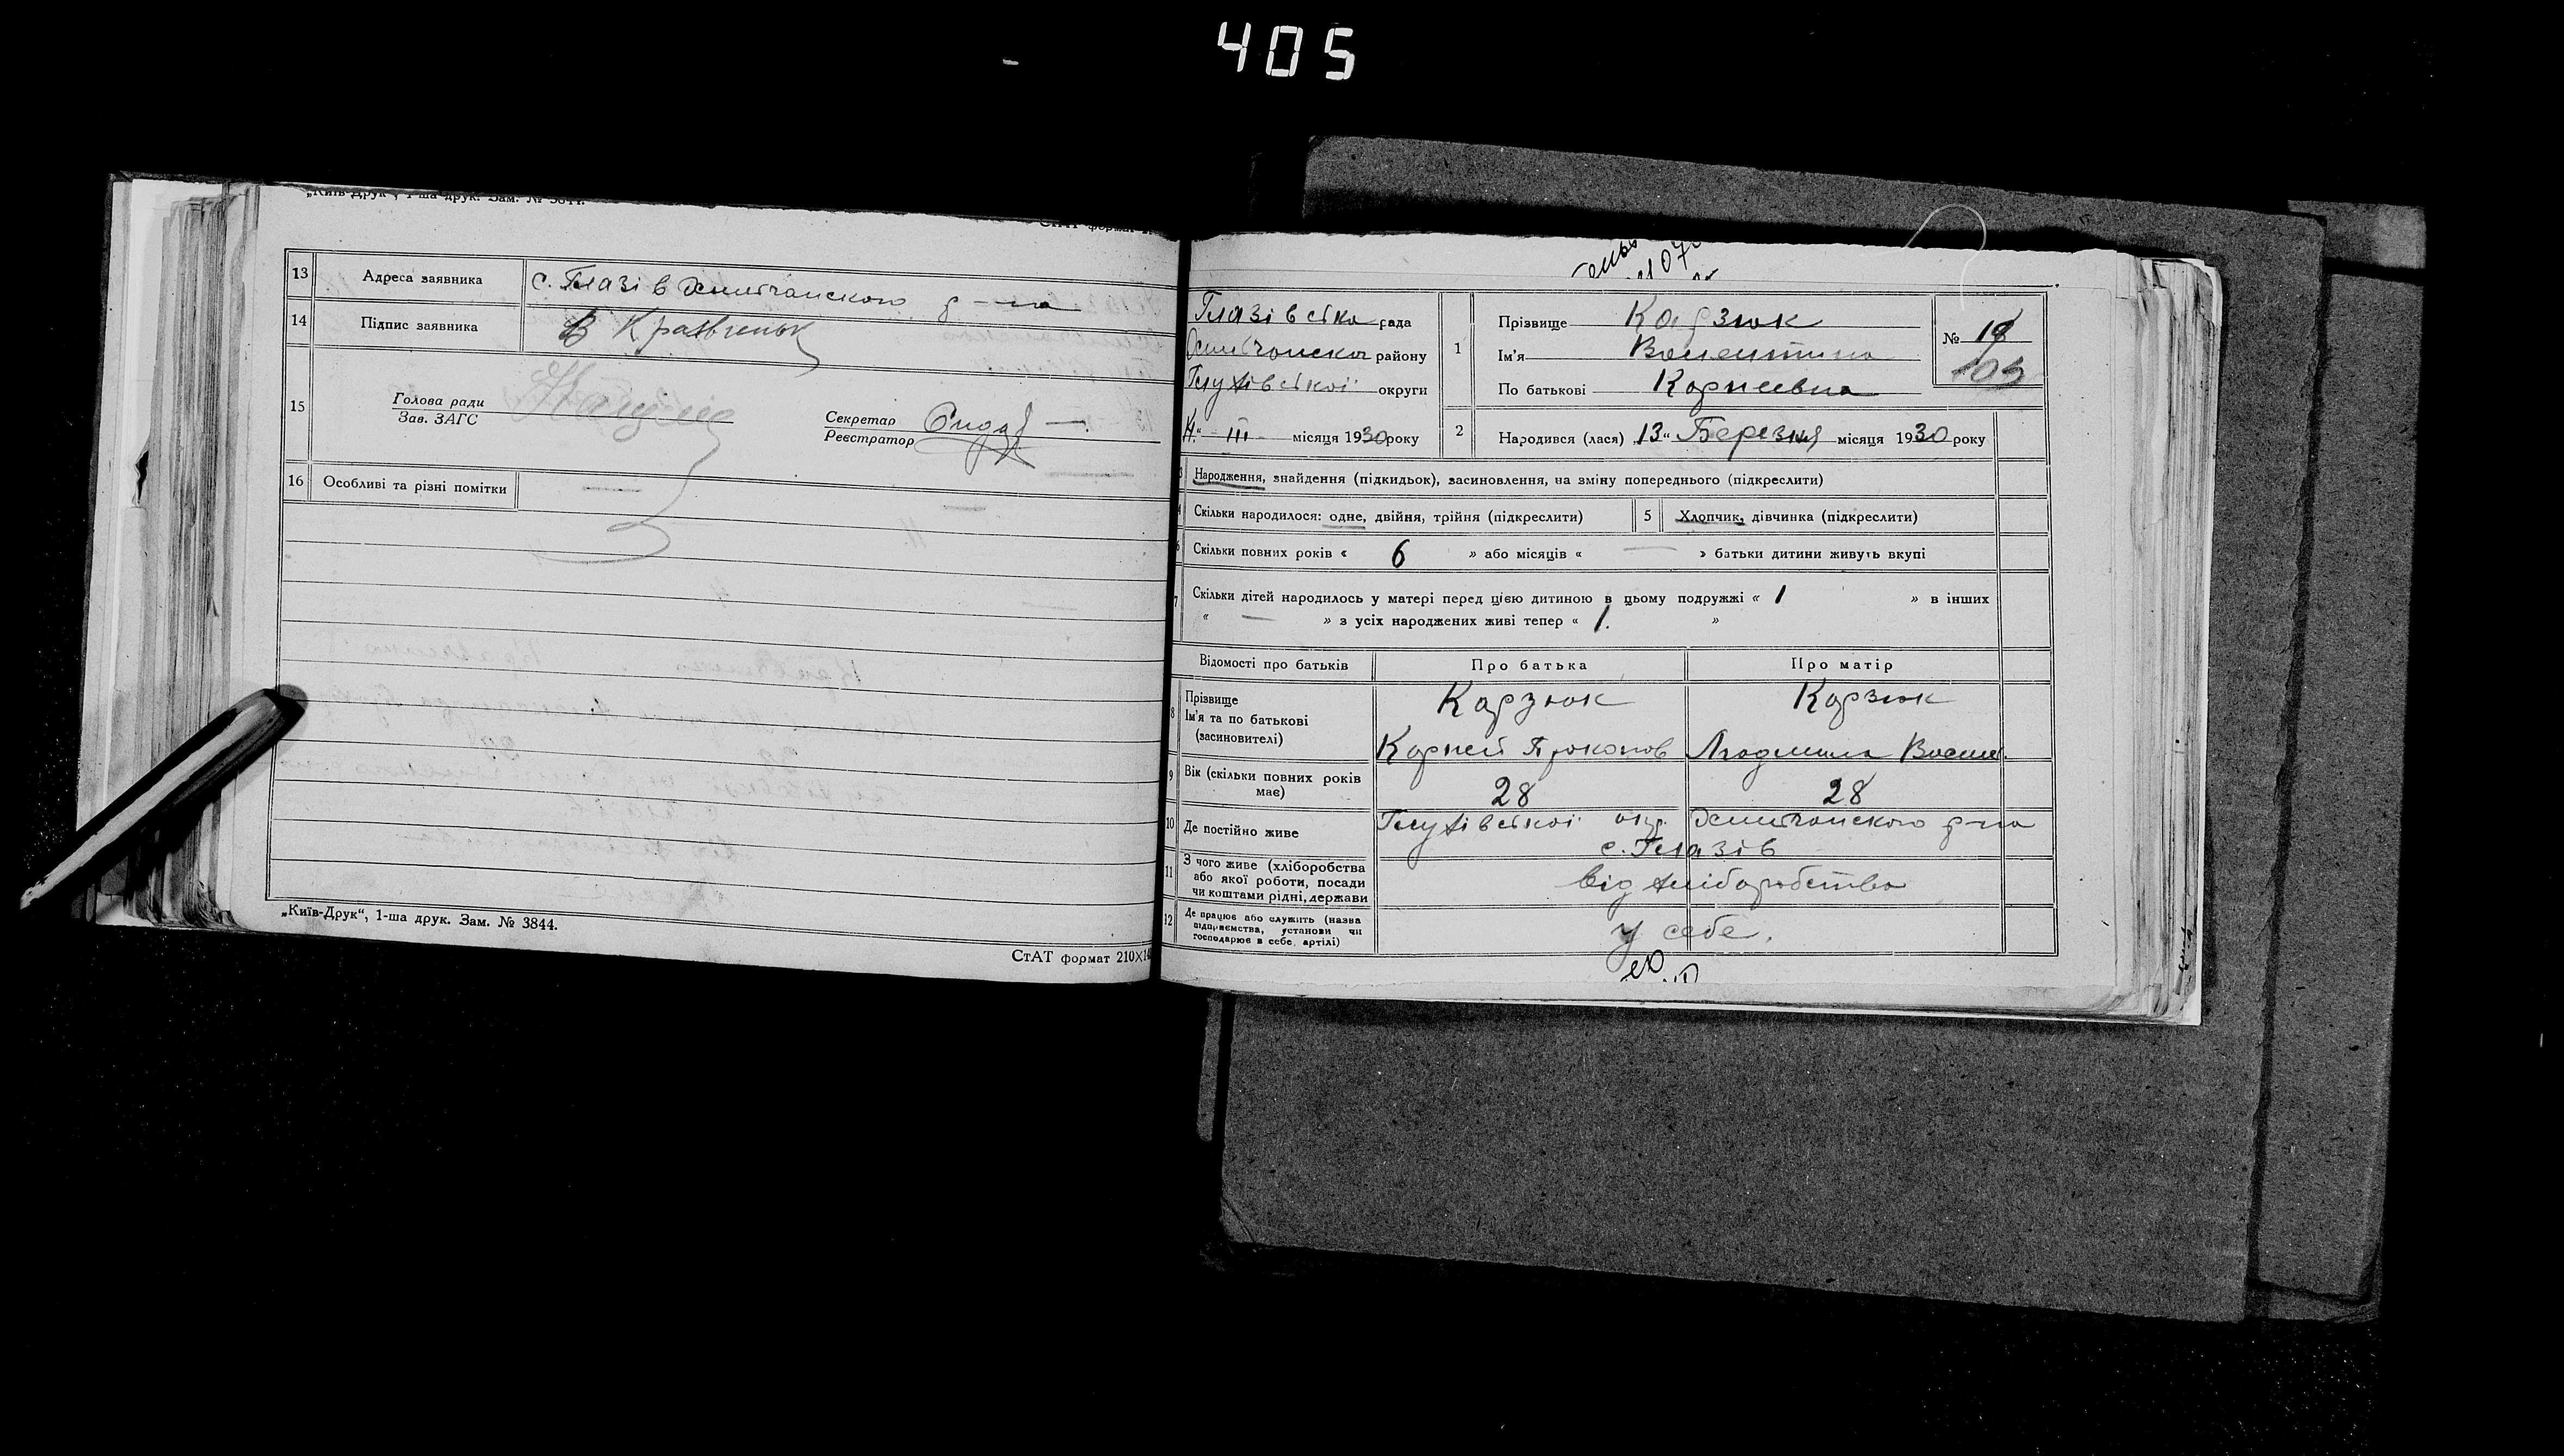 405
„Київ-Друк“, 1-ша друк. Зам. № 3844.
СтАТ формат
13 Адреса заявника с. Глазів Эсманського р-на
14 Підпис заявника В Кравченьк
15 Голова ради
Зав. ЗАГС
Секретар
Реєстратор
16 Особливі та різні помітки —
„Київ-Друк“, 1-ша друк. Зам. № 3844.
СтАТ формат 210×14
Глазівська рада
району
Глухівської округи
III місяця 1930 року
1 Прізвище Карзюк
Ім'я Валентина
По батькові Корнеевна
№ 19
105
2 Народився (лася) „13“ Березня місяця 1930 року
Народження, знайдення (підкидьок), засиновлення, на зміну попереднього (підкреслити)
Скільки народилося: одне, двійня, трійня (підкреслити) 5 Хлопчик, дівчинка (підкреслити)
6 Скільки повних років « 6 » або місяців « — » батьки дитини живуть вкупі
7 Скільки дітей народилось у матері перед цією дитиною в цьому подружжі « 1 » в інших
« — » з усіх народжених живі тепер « 1. »
Відомості про батьків Про батька Про матір
8 Прізвище Карзюк Карзюк
Ім'я та по батькові
(засиновителі) Корней Прокопов Людмила Васил.
9 Вік (скільки повних років
має) 28 28
10 Де постійно живе Глухівської окр. р-на
с. Глазів
11 З чого живе (хліборобства
або якої роботи, посади
чи коштами рідні, держави від хліборобства
12 Де працює або служить (назва
підприємства, установи чи
господарює в себе, артілі) у себе.